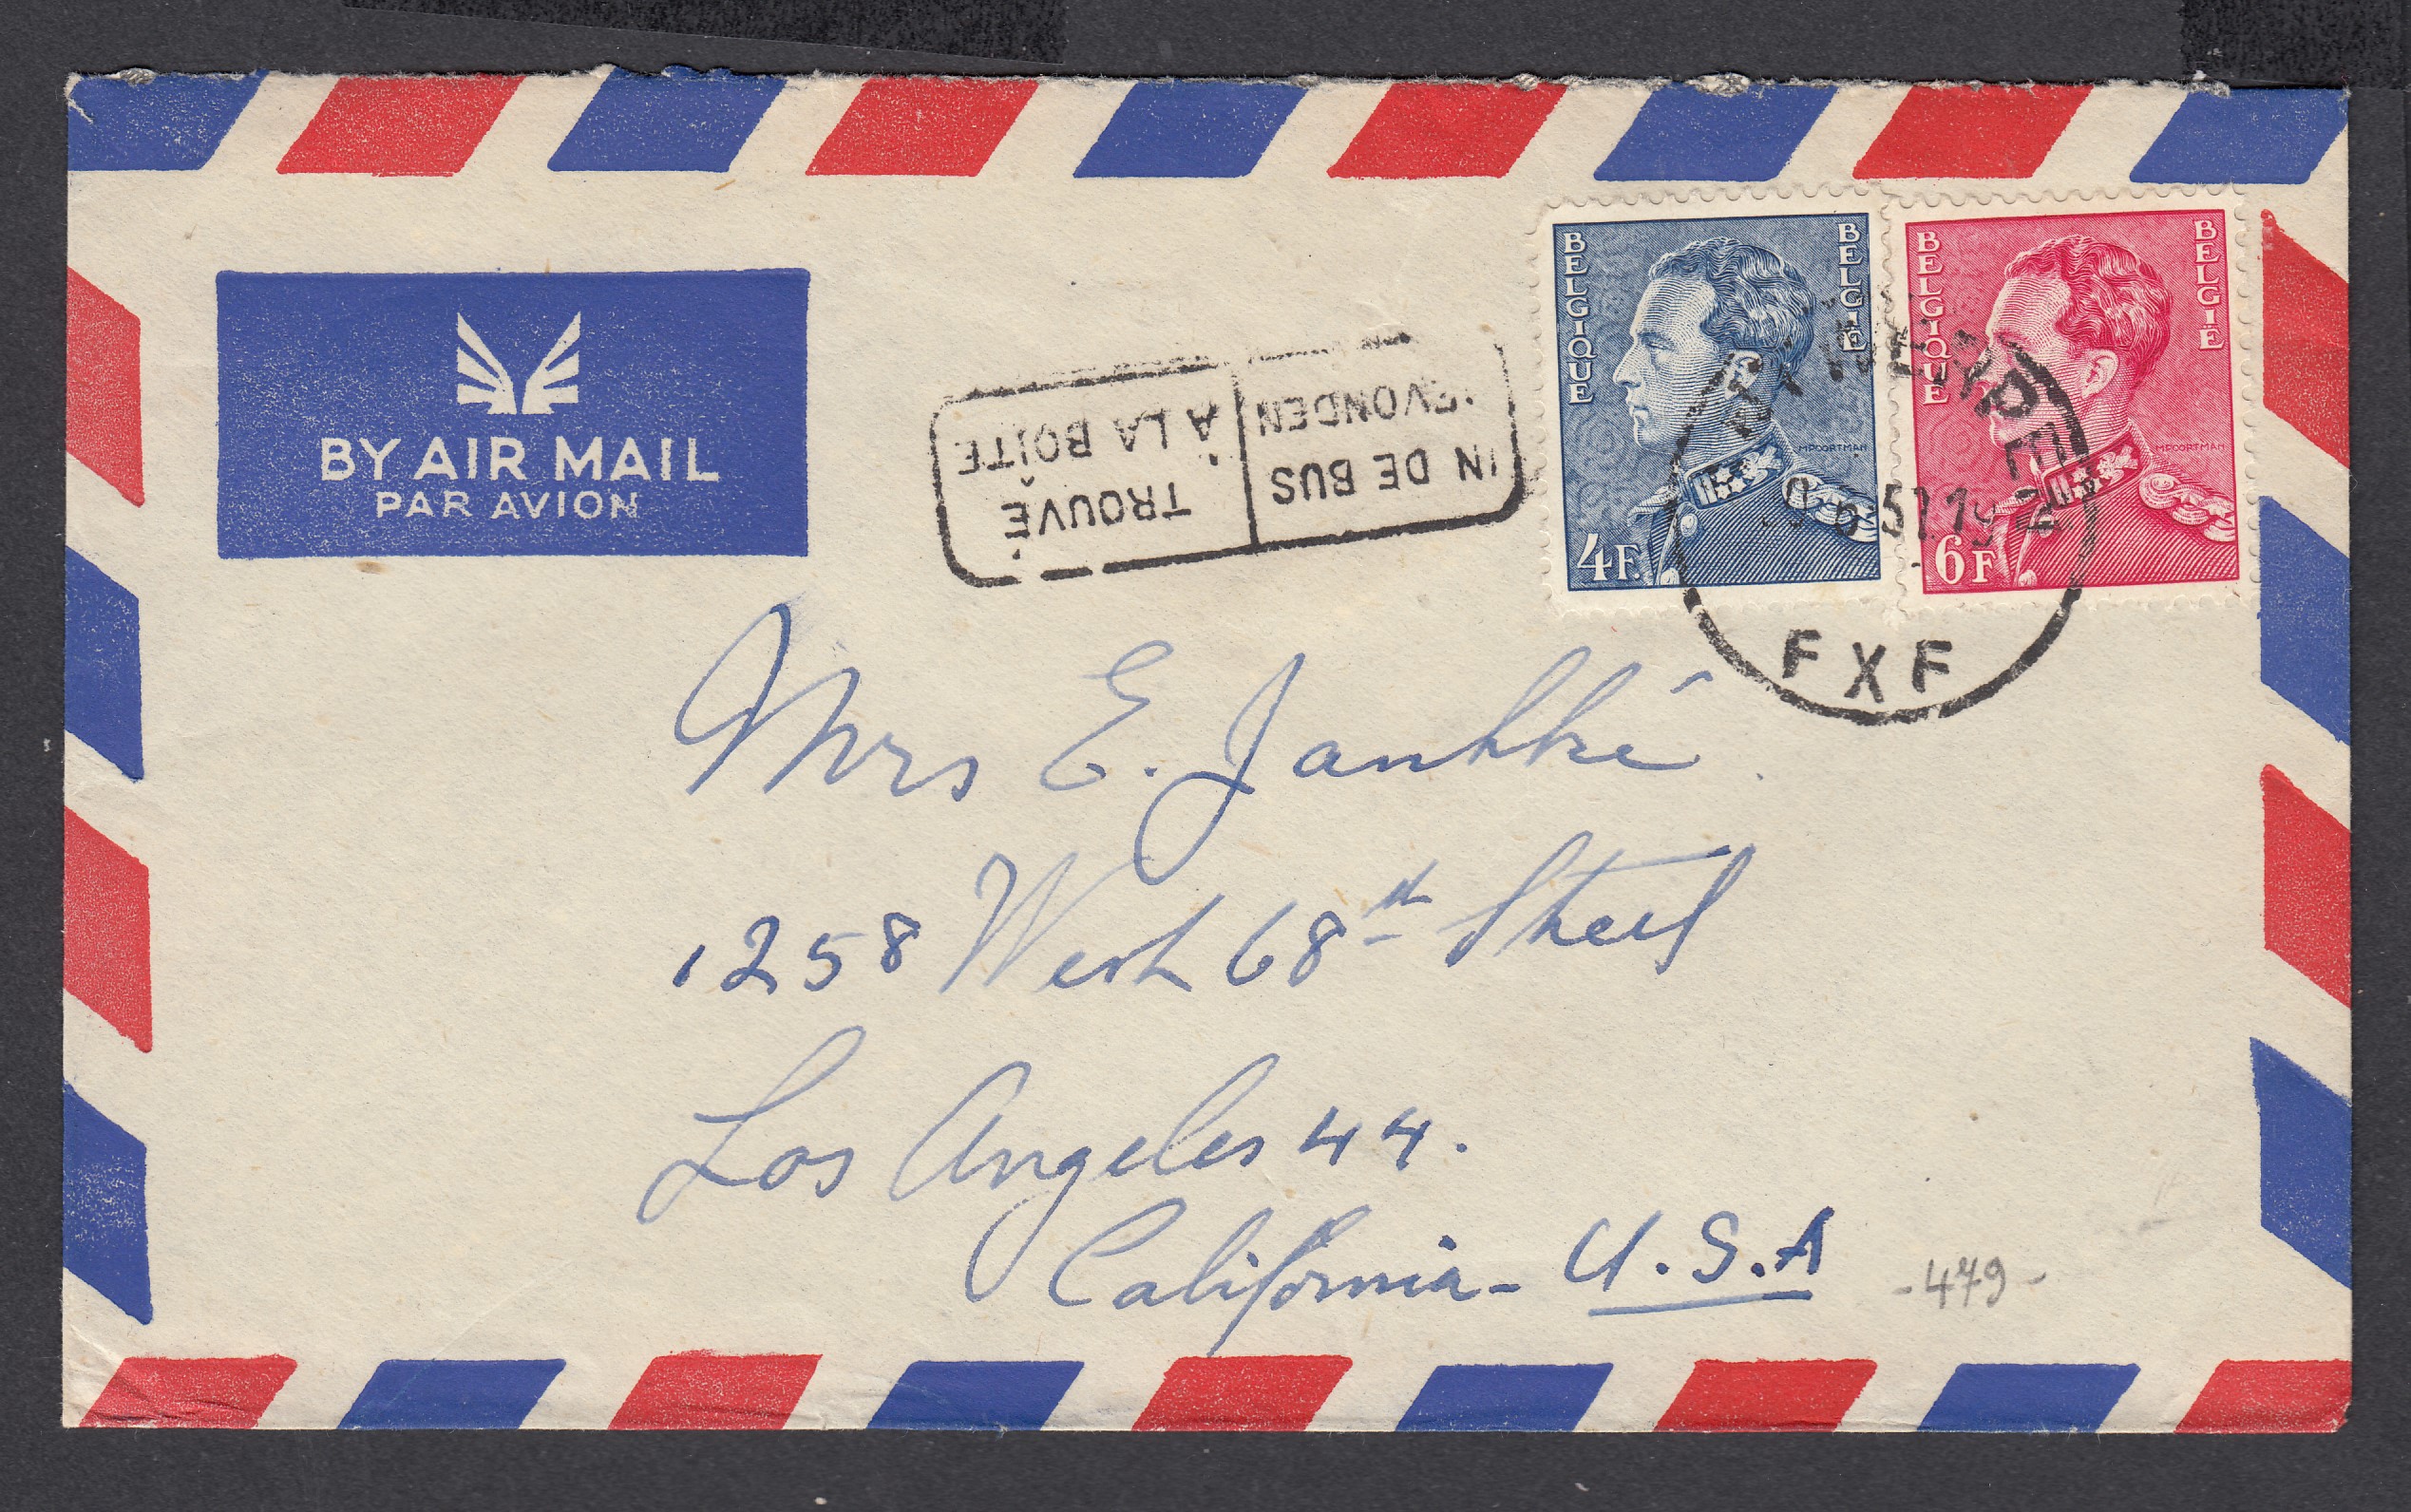 BY AIR MAIL
PAR AVION
TROUVÉ
À LA BOÎTE
IN DE BUS
GEVONDEN
BELGIQUE
BELGIË
MPOORTMAN
4F.
BELGIQUE
BELGIË
MPOORTMAN
6F
ANTWERPEN
6 51 19
FXF
Mrs E. Janhké
1258 West 68th Street
Los Angeles 44.
California - U.S.A
-479-